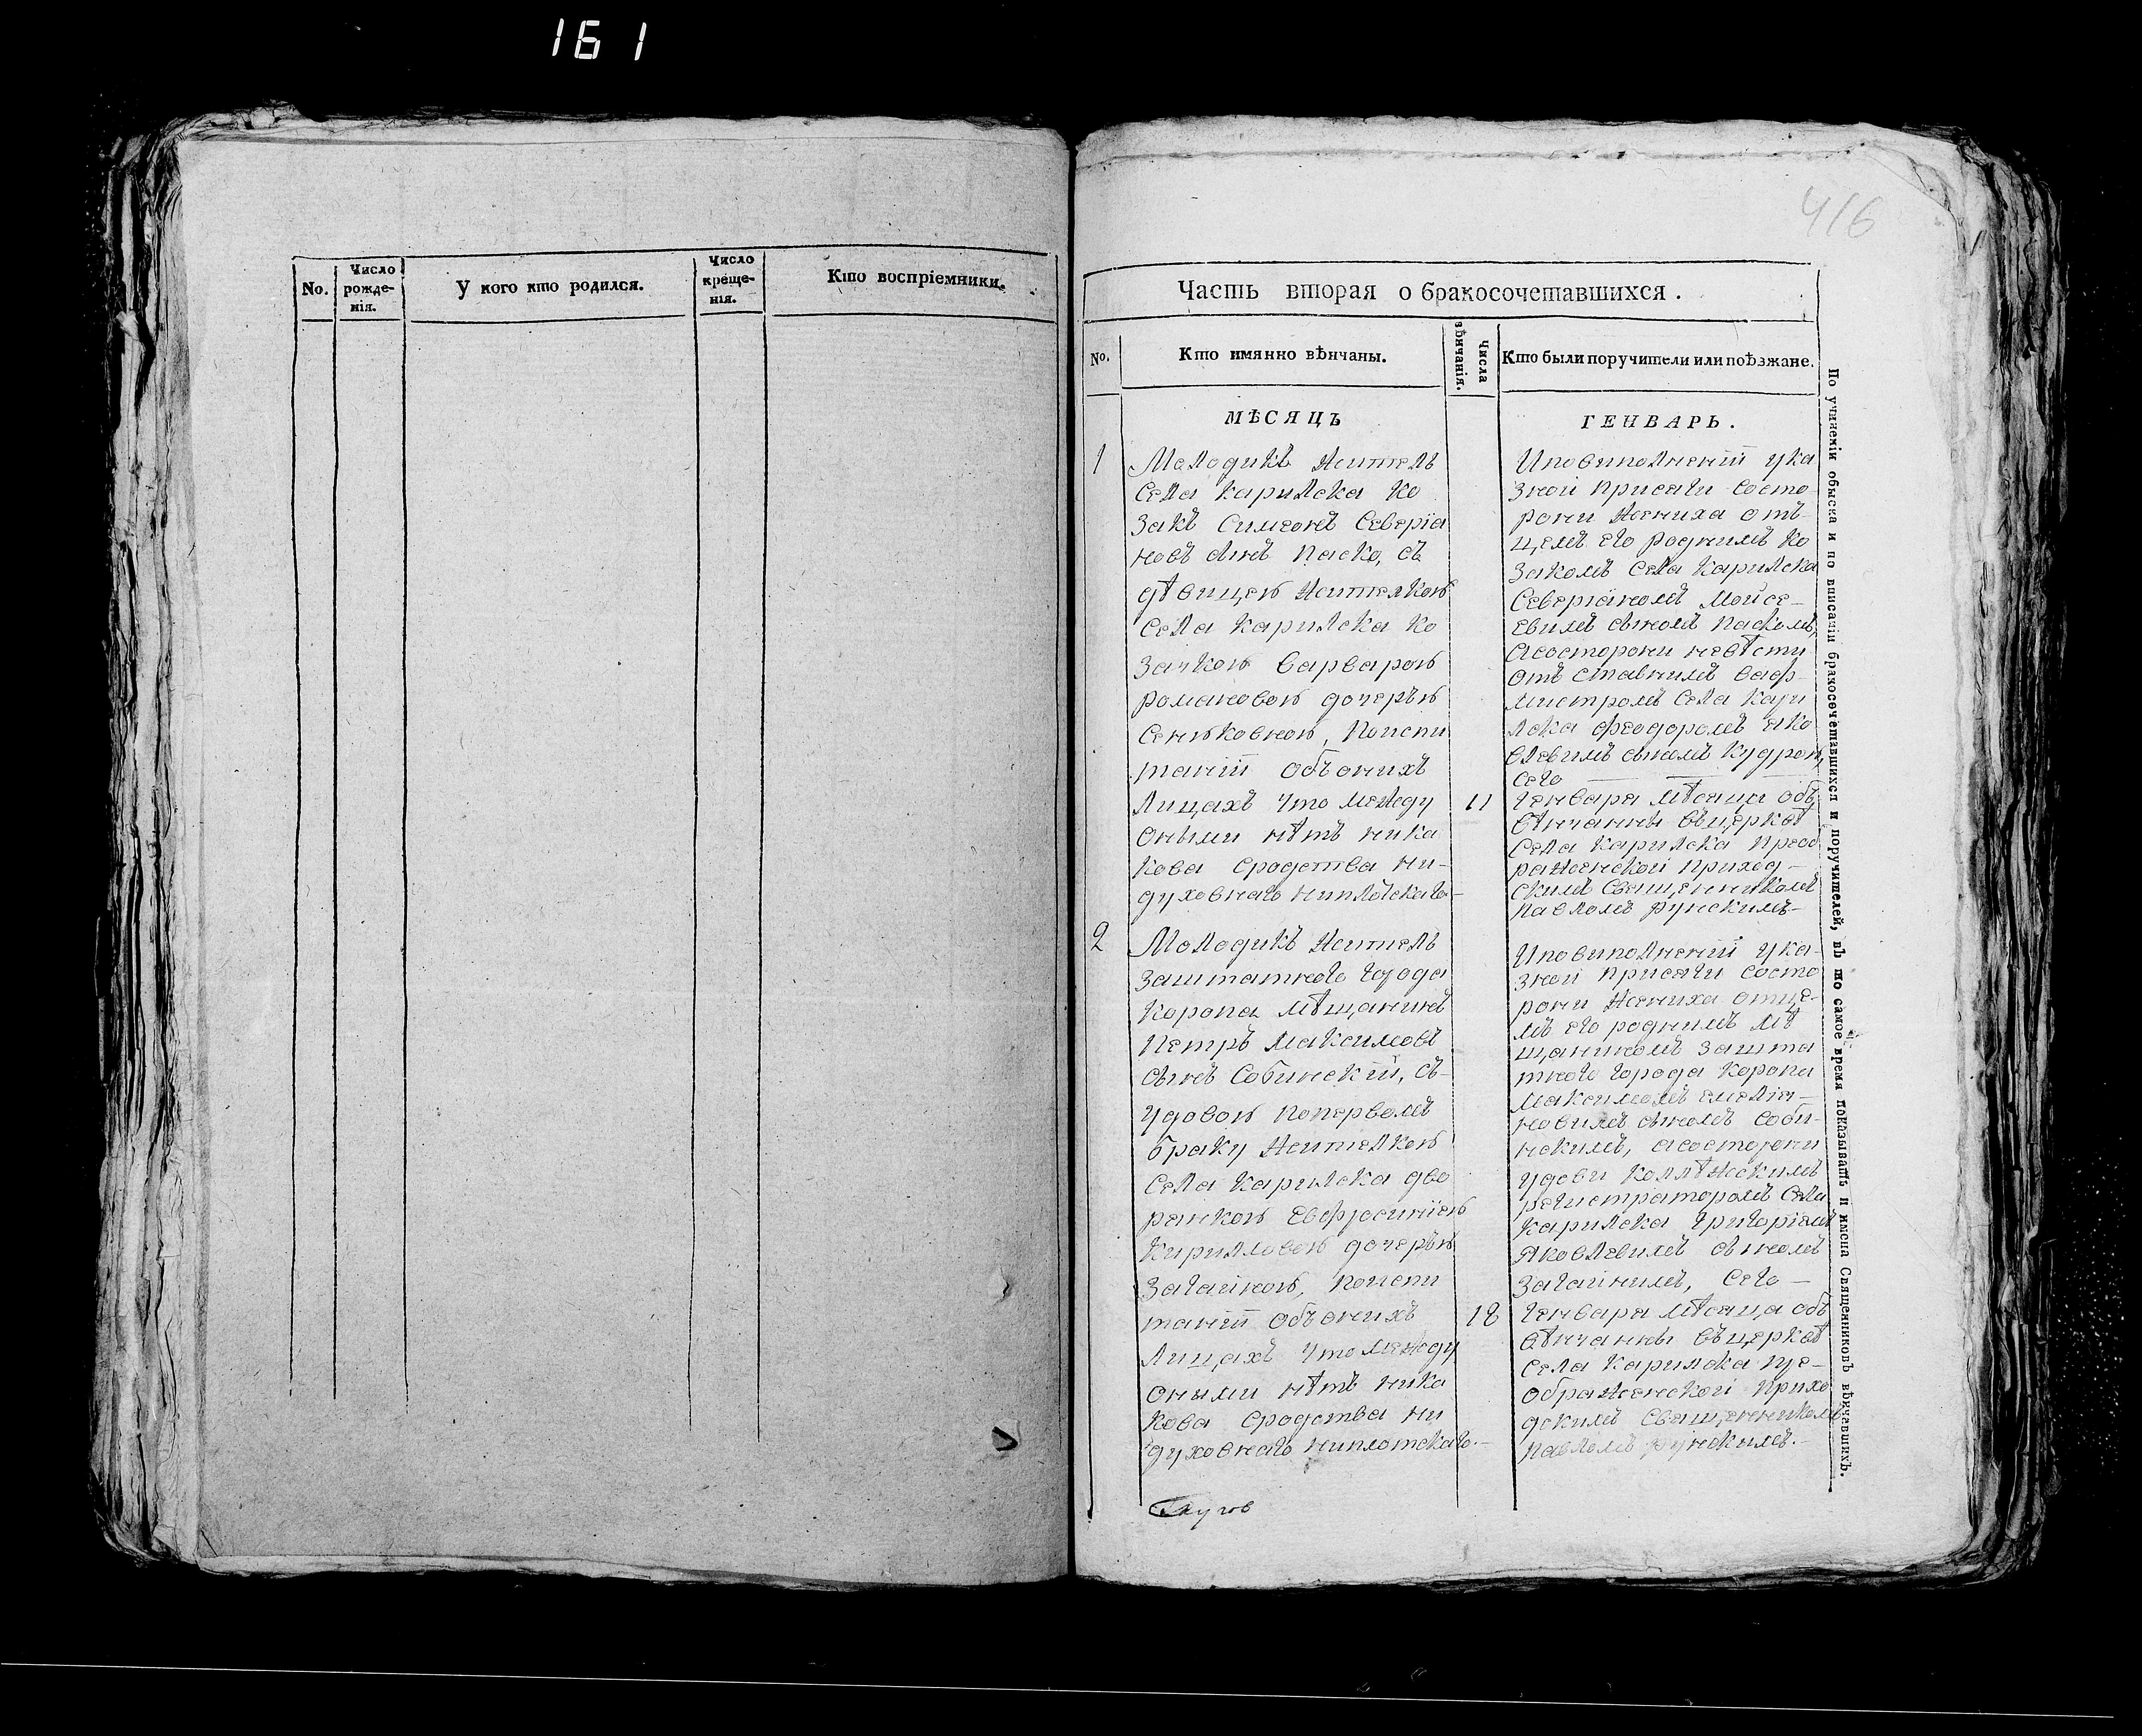 161
416
No.
Число рожде- нія.
У кого кто родился.
Число креще- нія.
Кто воспріемники.
Часть вторая о бракосочетавшихся.
No.
Кто имянно вѣнчаны.
Числа вѣнчанія.
Кто были поручители или поѣзжане.
МѢСЯЦЪ
ГЕНВАРЬ.
1
Молодикъ житель
села Карилска ко
закъ Симеонъ Северіа
новъ сынъ Паско, съ
дѣвицею жителкою
села Карилска ко
зачкою Варварою
Романовою дочерью
Сеньковною, поиспи
таніи объонихъ
лицахъ что между
оными нѣтъ ника
кова сродства ни-
духовнаго ниплотскаго-
11
Иповиполненіи ука
зной присяги состо
рони жениха отъ
цемъ его роднимъ ко
закомъ села Карилска
Северіаномъ Мойсе-
евимъ сыномъ Паскомъ,
асосторони невѣсти
отъставнимъ вахъ-
мистромъ села Кари
лска Феодоромъ Яко
влевимъ сыномъ Кудрею,
сего
генваря мѣсяца объ
вѣнчанны вцерквѣ
села Карилска Преоб
раженской приход-
скимъ священникомъ
Павломъ Рунскимъ-
2
Молодикъ житель
заштатного города
Коропа мѣщанинъ
Петръ Максимовъ
сынъ Собинскій, съ-
удовою поперъвомъ
браку жителкою
села Карилска дво
ранкою Евфросиніею
Кириловою дочерью
Загайною, поиспи
таніи объонихъ
лицахъ что между
оными нѣтъ ника
кова сродства ни
духовнаго ниплотскаго.-
18
Иповиполненіи ука-
зной присяги состо
рони жениха отце-
мъ его роднимъ мѣ
щаниномъ зашта
тного города Коропа
Максимомъ Емеліа-
новимъ сыномъ Соби-
нскимъ, асосторони
удови коллѣжскимъ
регистраторомъ села
Карилска Григоріемъ
Яковлевимъ сыномъ
Загайнимъ, сего-
генваря мѣсяца объ
вѣнчанны въцерквѣ
села Карилска Пре-
ображенской прихо
дскимъ священникомъ
Павломъ Рунскимъ.-
По учиненіи обыска и по вписаніи бракосочетавшихся и поручителей, въ то самое время показывать и имена Священниковъ вѣнчавшихъ.